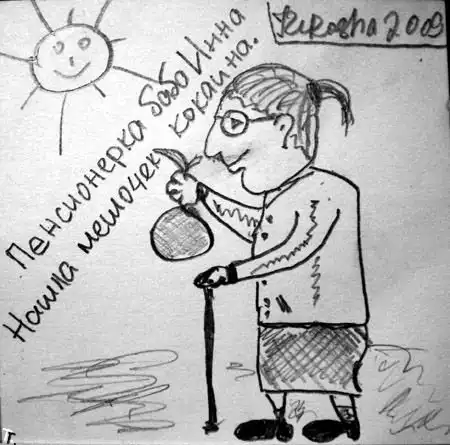 Kukasha 2009
Пенсионерка баба Инна
Нашла мешочек кокаина.
Т.